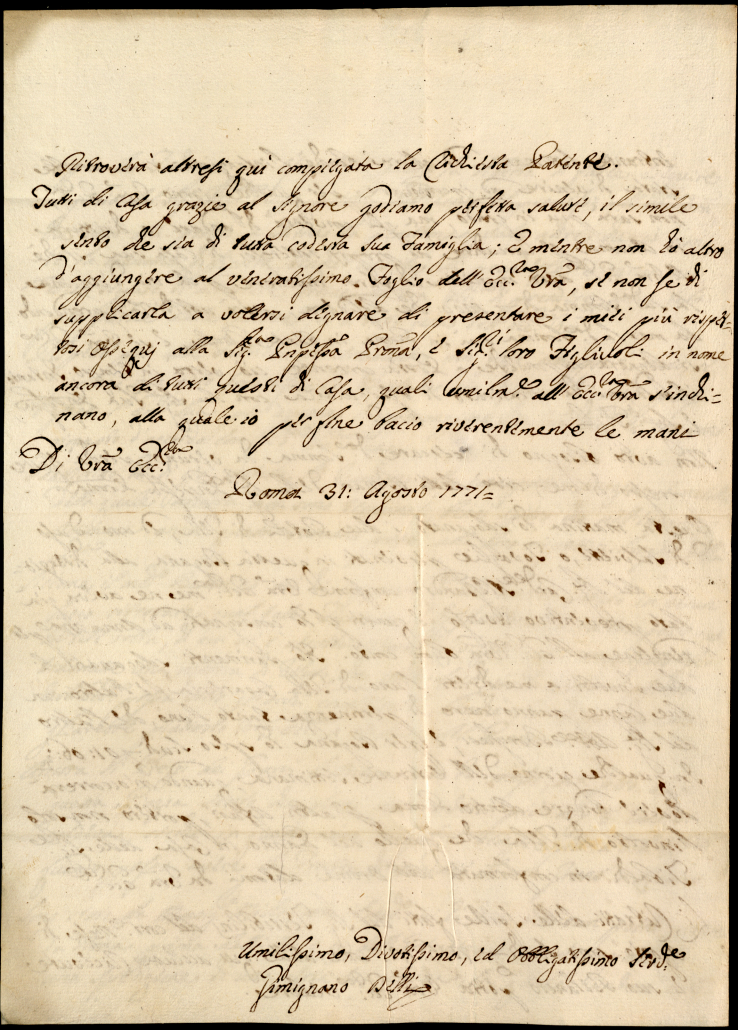 Ritroverà altresì qui compiegata la richiesta Patente.
Tutti di Casa grazie al Signore godiamo perfetta salute, il simile
sento che sia di tutta codesta sua Famiglia; E mentre non hò altro
d'aggiungere al veneratissimo Foglio dell'Ecc.za Vrã, se non se di
supplicarla a volersi dignare di presentare i miei più rispet-
tosi ossequj alla Sig.ra Pnpessa Prona, e Sig.ri loro Figliuoli in nome
ancora di tutti questi di Casa, quali umilm.e all'Ecc.za Vrã s'inchi=
nano, alla quale io per fine bacio riverentemente le mani
Di Vrã Ecc.za
Roma 31: Agosto 1771=
Umilissimo, Divotissimo, ed Obbligatissimo Serv.e
Gimignano